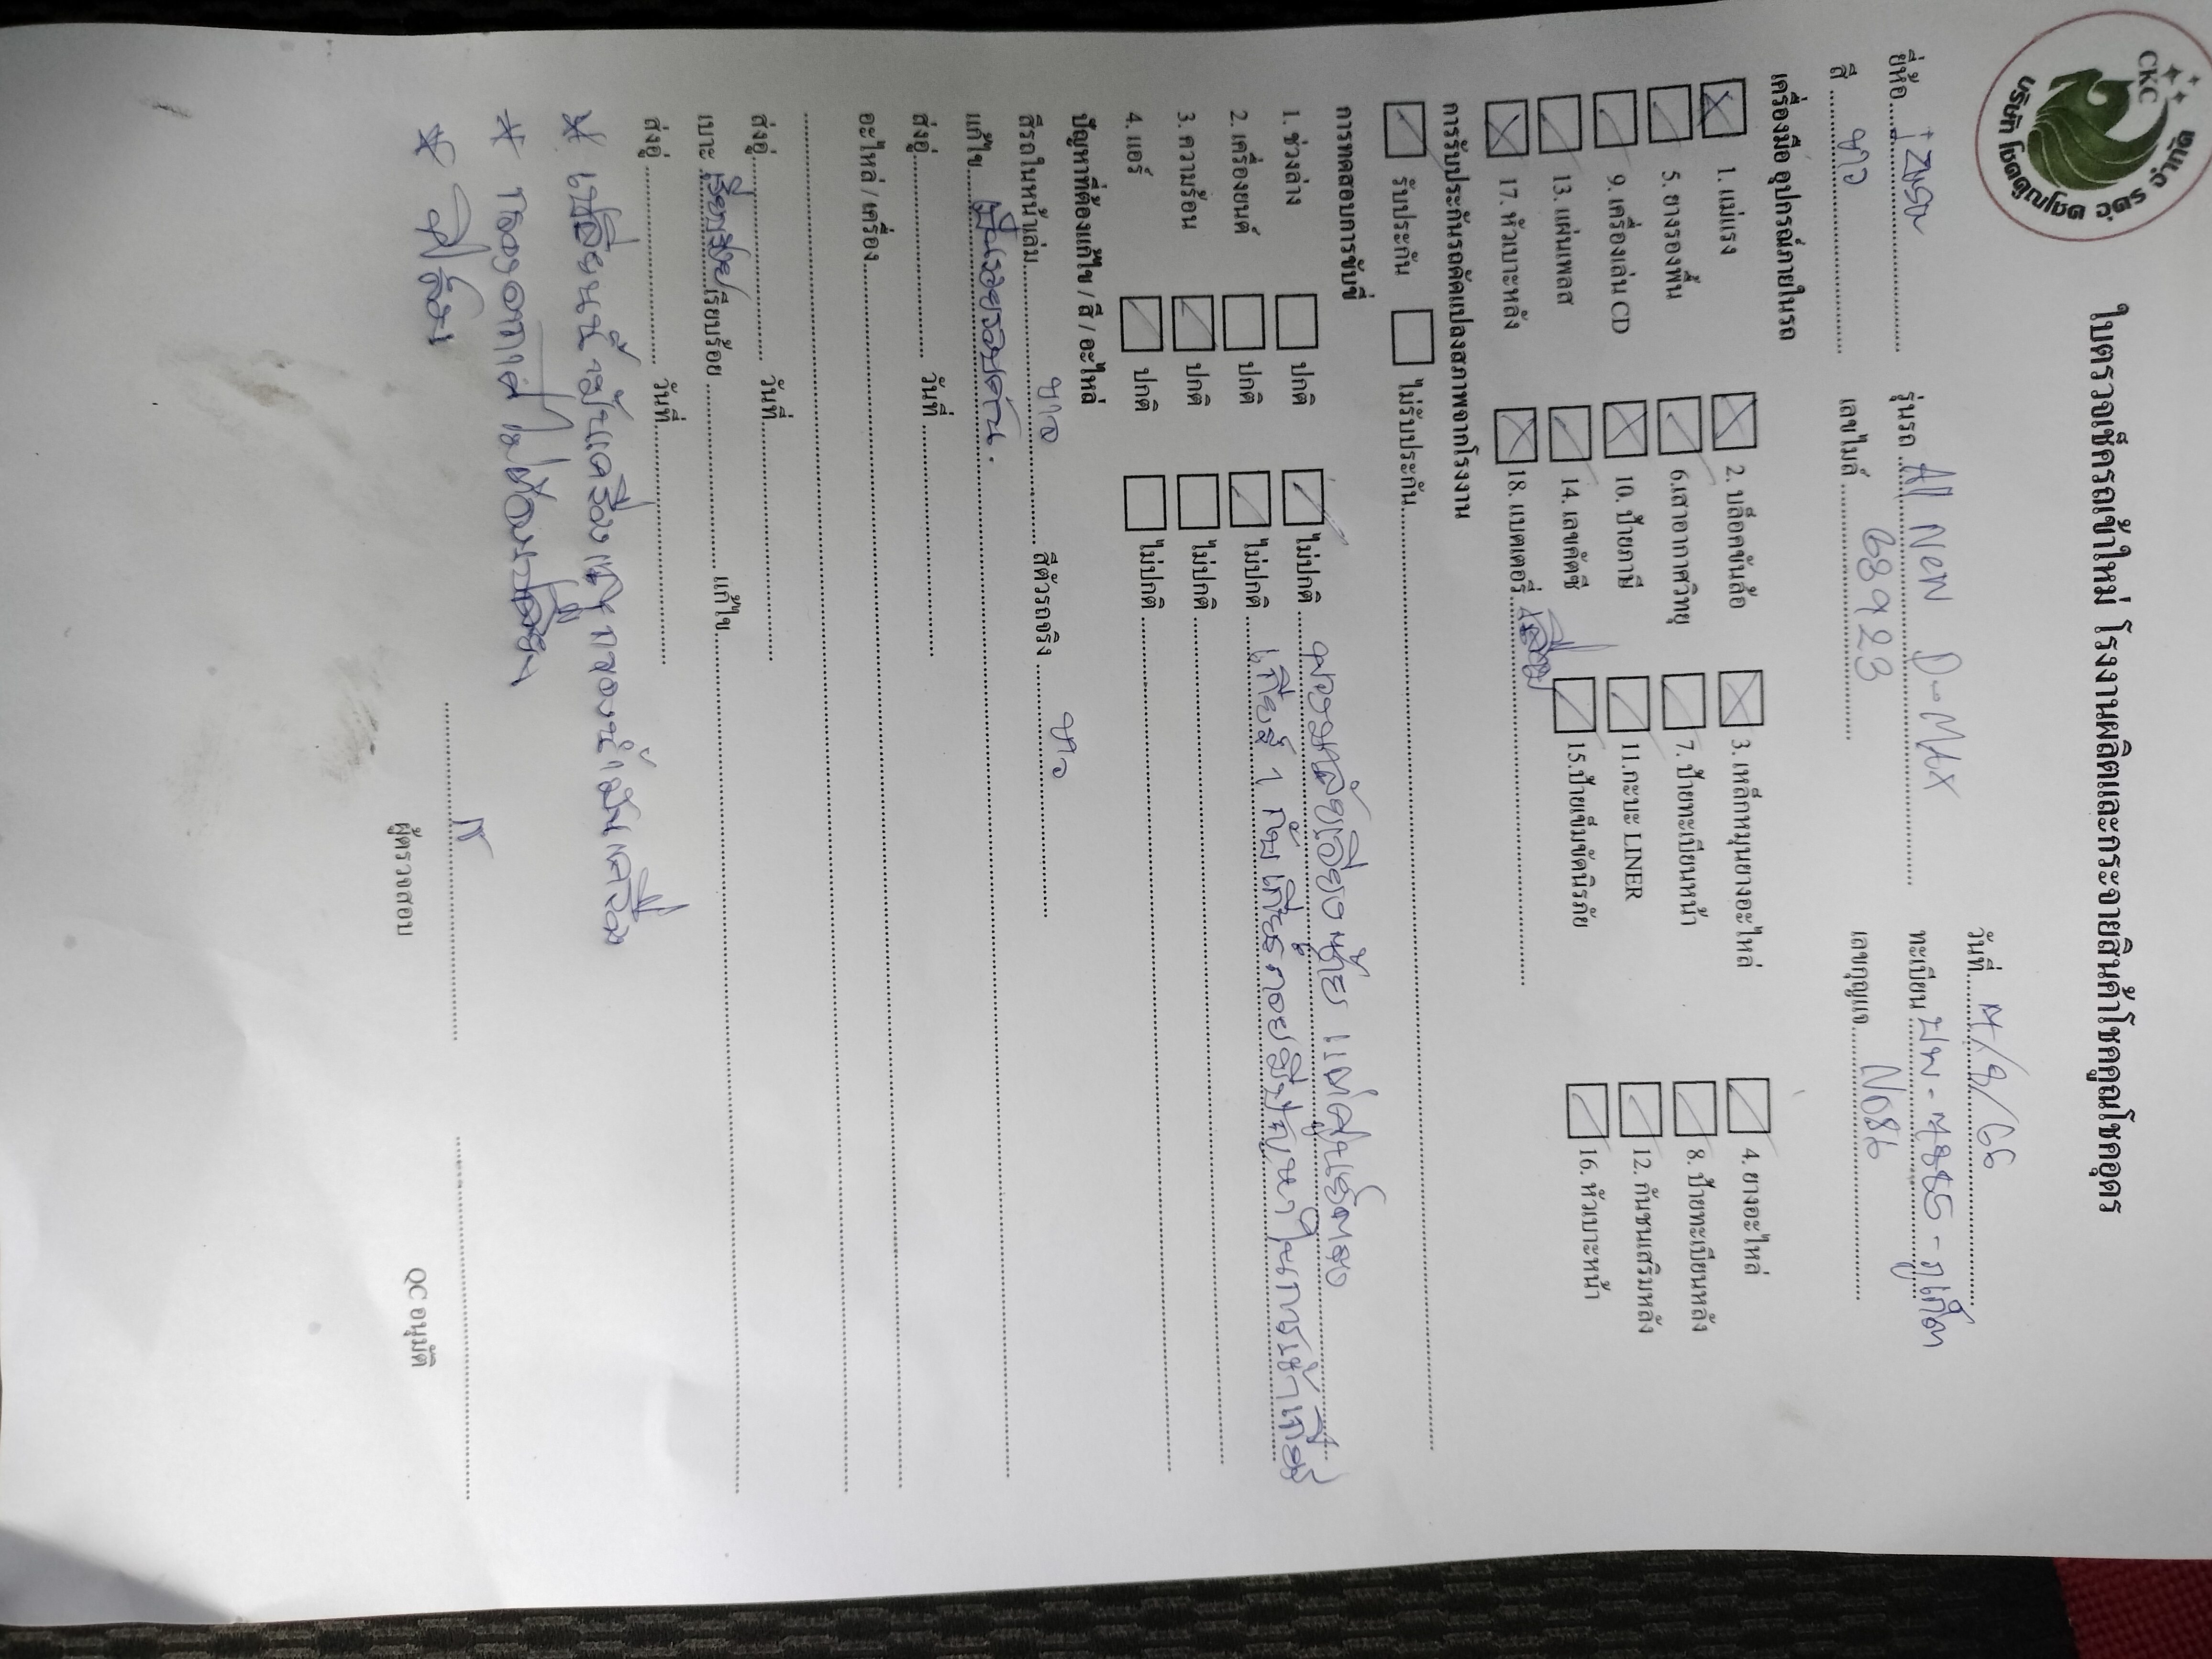 CKC
บริษัท โชคคูณโชค อุดร จำกัด
ใบตรวจเช็ครถเข้าใหม่ โรงงานผลิตและกระจายสินค้าโชคคูณโชคอุดร
วันที่
ยี่ห้อ อีซูซุ รุ่นรถ All New D-MAX ทะเบียน ภูเก็ต
สี ขาว เลขไมล์ เลขกุญแจ N086
เครื่องมือ อุปกรณ์ภายในรถ
1. แม่แรง 2. บล็อคขันล้อ 3. เหล็กหมุนยางอะไหล่ 4. ยางอะไหล่
5. ยางรองพื้น 6.เสาอากาศวิทยุ 7. ป้ายทะเบียนหน้า 8. ป้ายทะเบียนหลัง
9. เครื่องเล่น CD 10. ป้ายภาษี 11.กะบะ LINER 12. กันชนเสริมหลัง
13. แผ่นเพลส 14. เลขคัคซี 15.ป้ายเข็มขัดนิรภัย 16. หัวเบาะหน้า
17. หัวเบาะหลัง 18. แบตเตอรี่ เสื่อม
การรับประกันรถดัดแปลงสภาพจากโรงงาน
รับประกัน ไม่รับประกัน
การทดสอบการขับขี่
1. ช่วงล่าง ปกติ ไม่ปกติ พวงมาลัยเอียงซ้าย แต่ศูนย์ตรง
2. เครื่องยนต์ ปกติ ไม่ปกติ เกียร์ 1 กับเกียร์ถอยมีปัญหาในการเข้าเกียร์
3. ความร้อน ปกติ ไม่ปกติ
4. แอร์ ปกติ ไม่ปกติ
ปัญหาที่ต้องแก้ไข / สี / อะไหล่
สีรถในหน้าเล่ม ขาว สีตัวรถจริง ขาว
แก้ไข
ส่งอู่ วันที่
อะไหล่ / เครื่อง
ส่งอู่ วันที่
เบาะ เรียบร้อย แก้ไข
ส่งอู่ วันที่
* เปลี่ยนน้ำมันเครื่องและกรองน้ำมันเครื่อง
* กรองอากาศไม่ต้องเปลี่ยน
ผู้ตรวจสอบ QC อนุมัติ